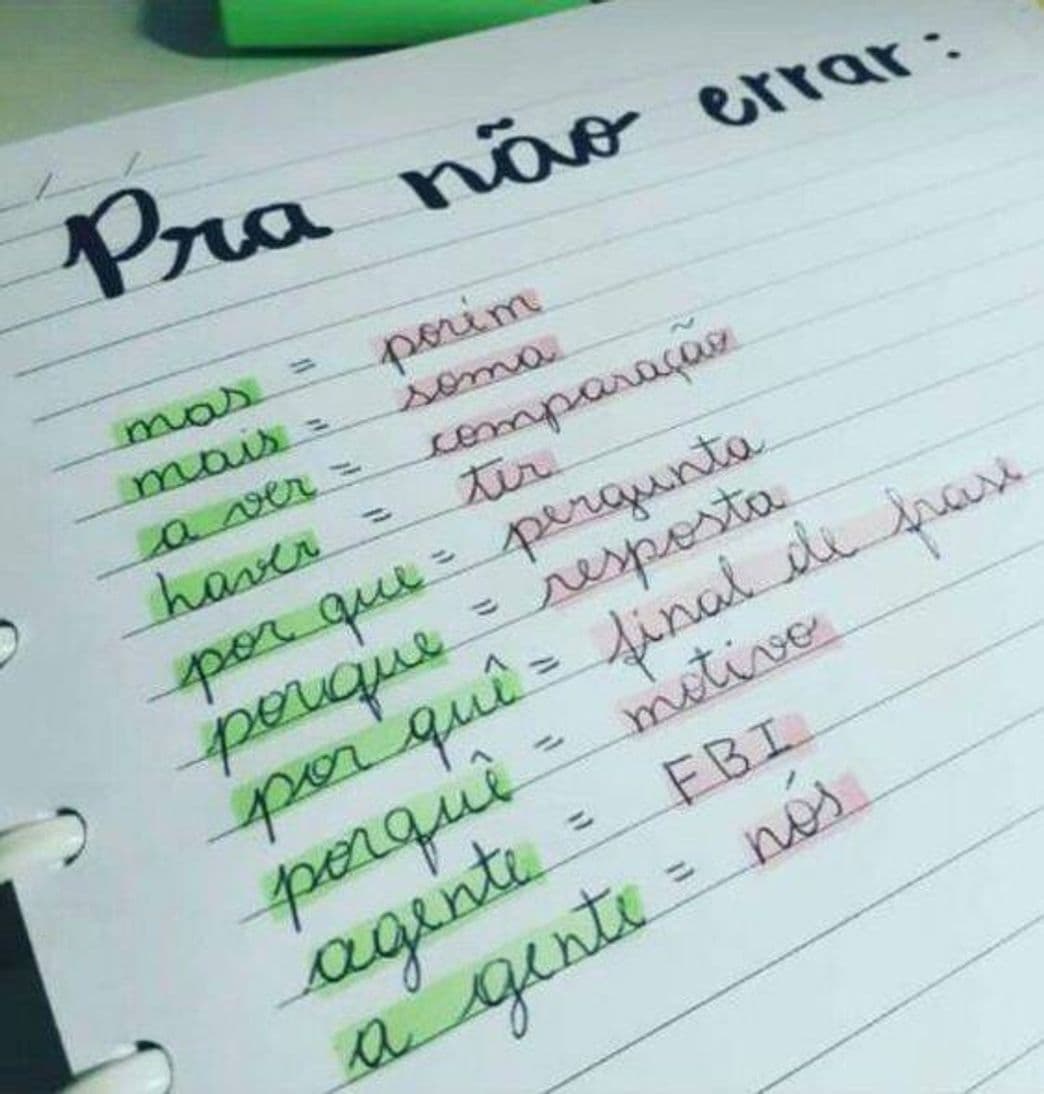 Pra não errar:
mas = porém
mais = soma
a ver = comparação
haver = ter
por que = pergunta
porque = resposta
por quê = final de frase
porquê = motivo
agente = FBI
a gente = nós